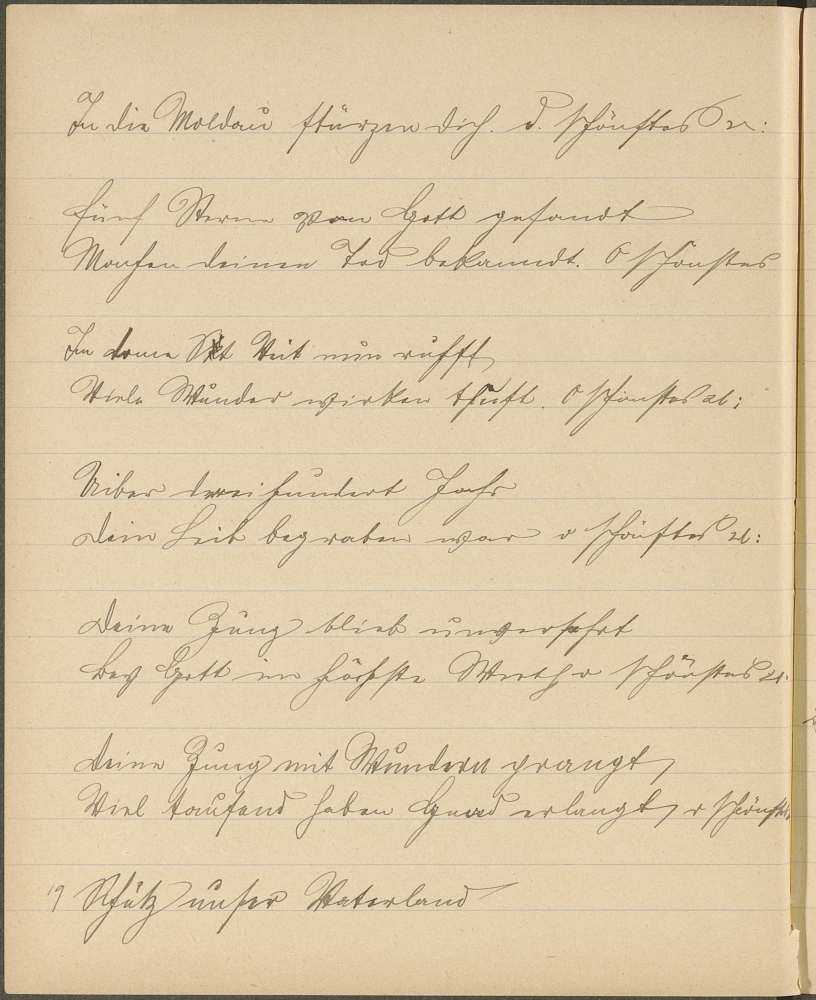 In die Moldau stürzen dich. d. schönstes ec:
Fünf Sterne von Gott gesandt
Machen deinen Tod bekanndt. O schönstes
Im dome Skt Veit nun ruhst,
Viele Wunder wirken thust. O schönstes ec:
Uiber dreihundert Jahr
Dein Leib begraben war o schönstes ec:
Deine Zung blieb unversehrt
Bey Gott im höchste Werth o schönstes ec:
Deine Zung mit Wundern prangt,
Viel tausend haben Gnad erlangt, o schönstes
19 Schütz unser Vaterland